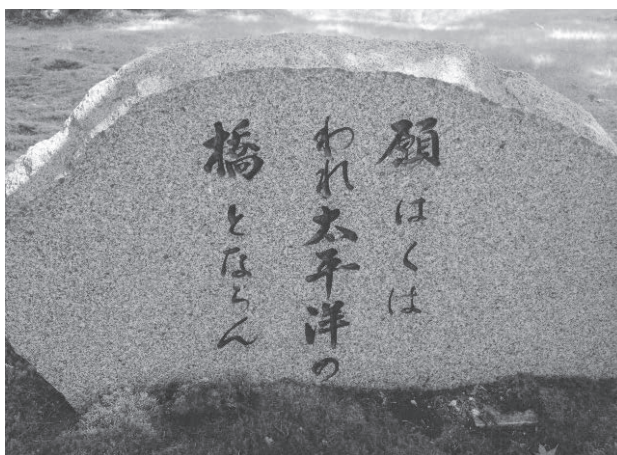 願はくは
われ太平洋の
橋とならん